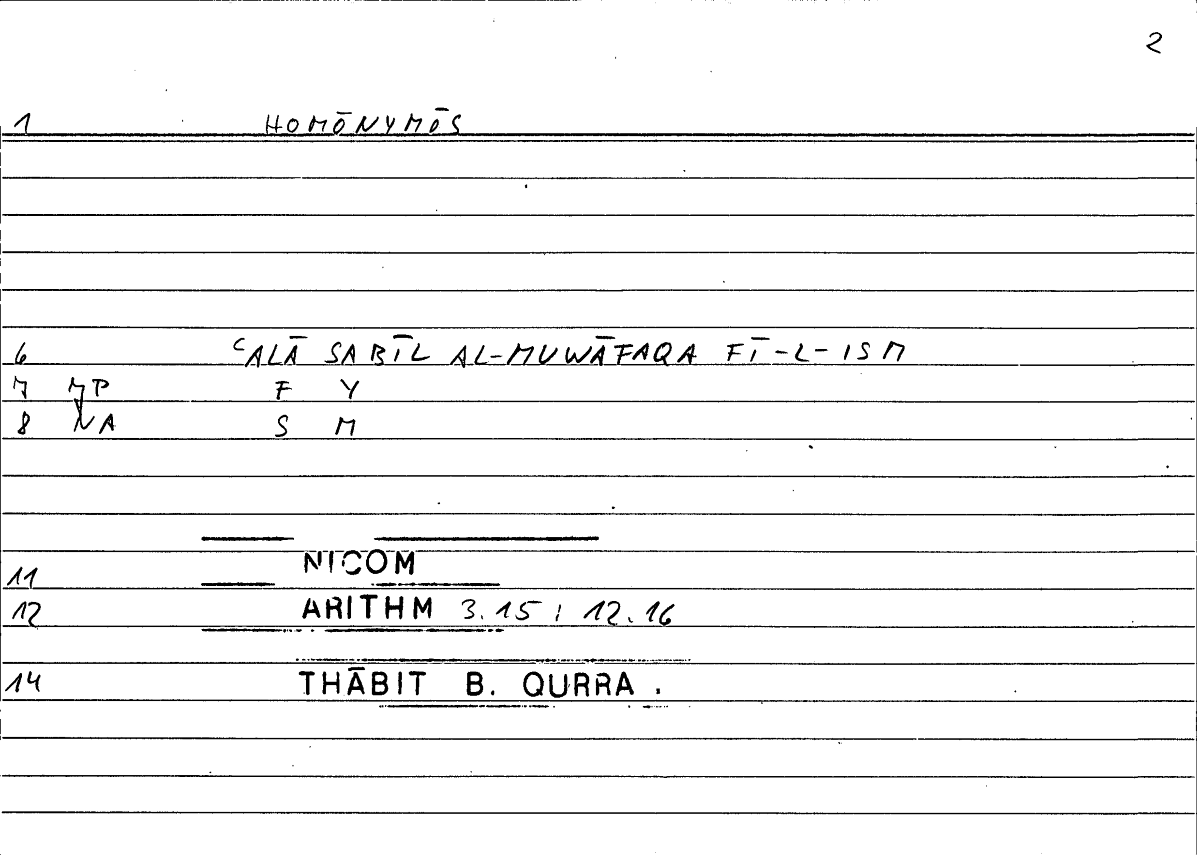 2
1 HOMŌNYMŌS
6 ʿALĀ SABĪL AL-MUWĀFAQA FĪ-L-ISM
7 F Y
8 NA S M
11 NICOM
12 ARITHM 3.15 ; 12.16
14 THĀBIT B. QURRA .